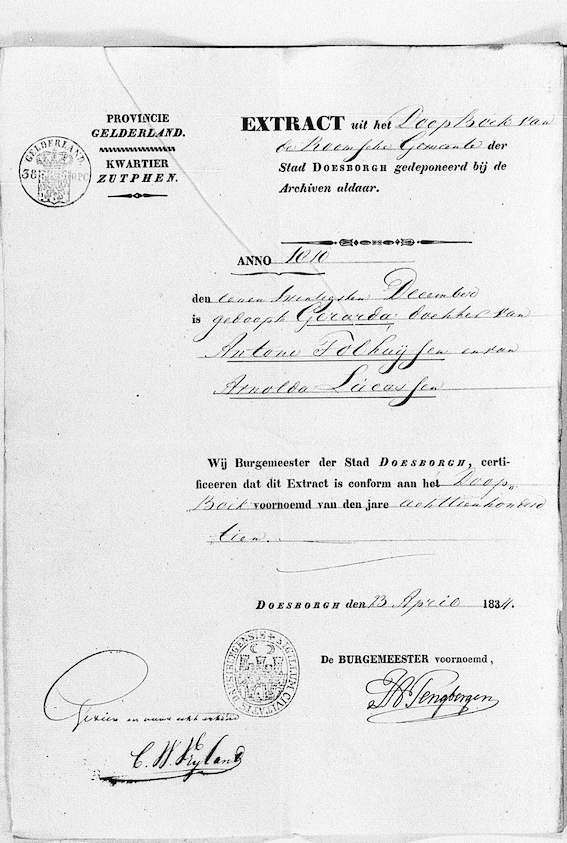 PROVINCIE
GELDERLAND.
KWARTIER
ZUTPHEN.
GELDERLAND
38 OPC
EXTRACT uit het Doop Boek van
de Roomsche Gemeente der
Stad DOESBORGH gedeponeerd bij de
Archiven aldaar.
ANNO 1810
den eenen twentigsten December
is gedoopt Gerarda, dochter van
Antoni Folhuijsen en van
Arnolda Lucassen
Wij Burgemeester der Stad DOESBORGH, certi-
ficeeren dat dit Extract is conform aan het Doop
Boek voornoemd van den jare achttienhonderd
tien.
DOESBORGH den 23 April 1834.
De BURGEMEESTER voornoemd,
SIGILLUM CIVITATIS DOESBURGENSIS
Gezien en voor echt erkend
C. W. Ryland